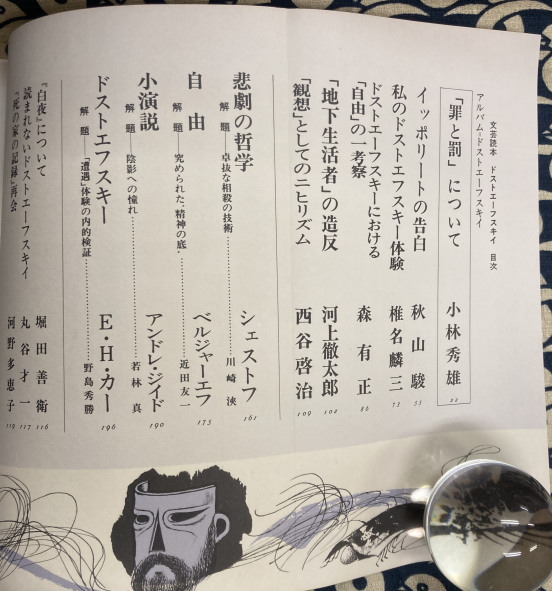 文芸読本 ドストエーフスキイ 目次
アルバム＝ドストエーフスキイ
「罪と罰」について 小林秀雄 22
イッポリートの告白 秋山駿 55
私のドストエフスキー体験 椎名麟三 73
ドストエーフスキーにおける
「自由」の一考察 森有正 86
「地下生活者」の造反 河上徹太郎 104
「観想」としてのニヒリズム 西谷啓治 109
悲劇の哲学 シェストフ 161
解題―卓抜な相殺の技術 川崎浹
自由 ベルジャーエフ 175
解題―究められた〝精神の底〟 近田友一
小演説 アンドレ・ジイド 190
解題―陰影への憧れ 若林真
ドストエフスキー E・H・カー 196
解題―「遭遇」体験の内的検証 野島秀勝
『白夜』について 堀田善衛 116
読まれないドストエーフスキイ 丸谷才一 117
『死の家の記録』再会 河野多惠子 119